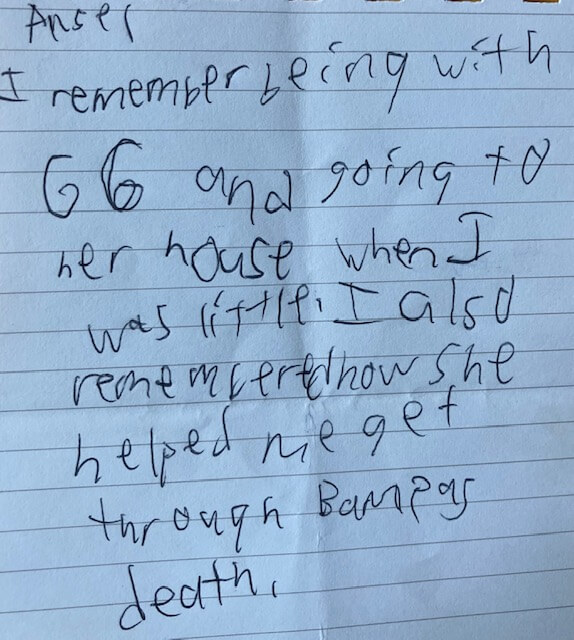 Ansel
I remember being with
GG and going to
her house when I
was little. I also
remembered how she
helped me get
through Bampas
death.